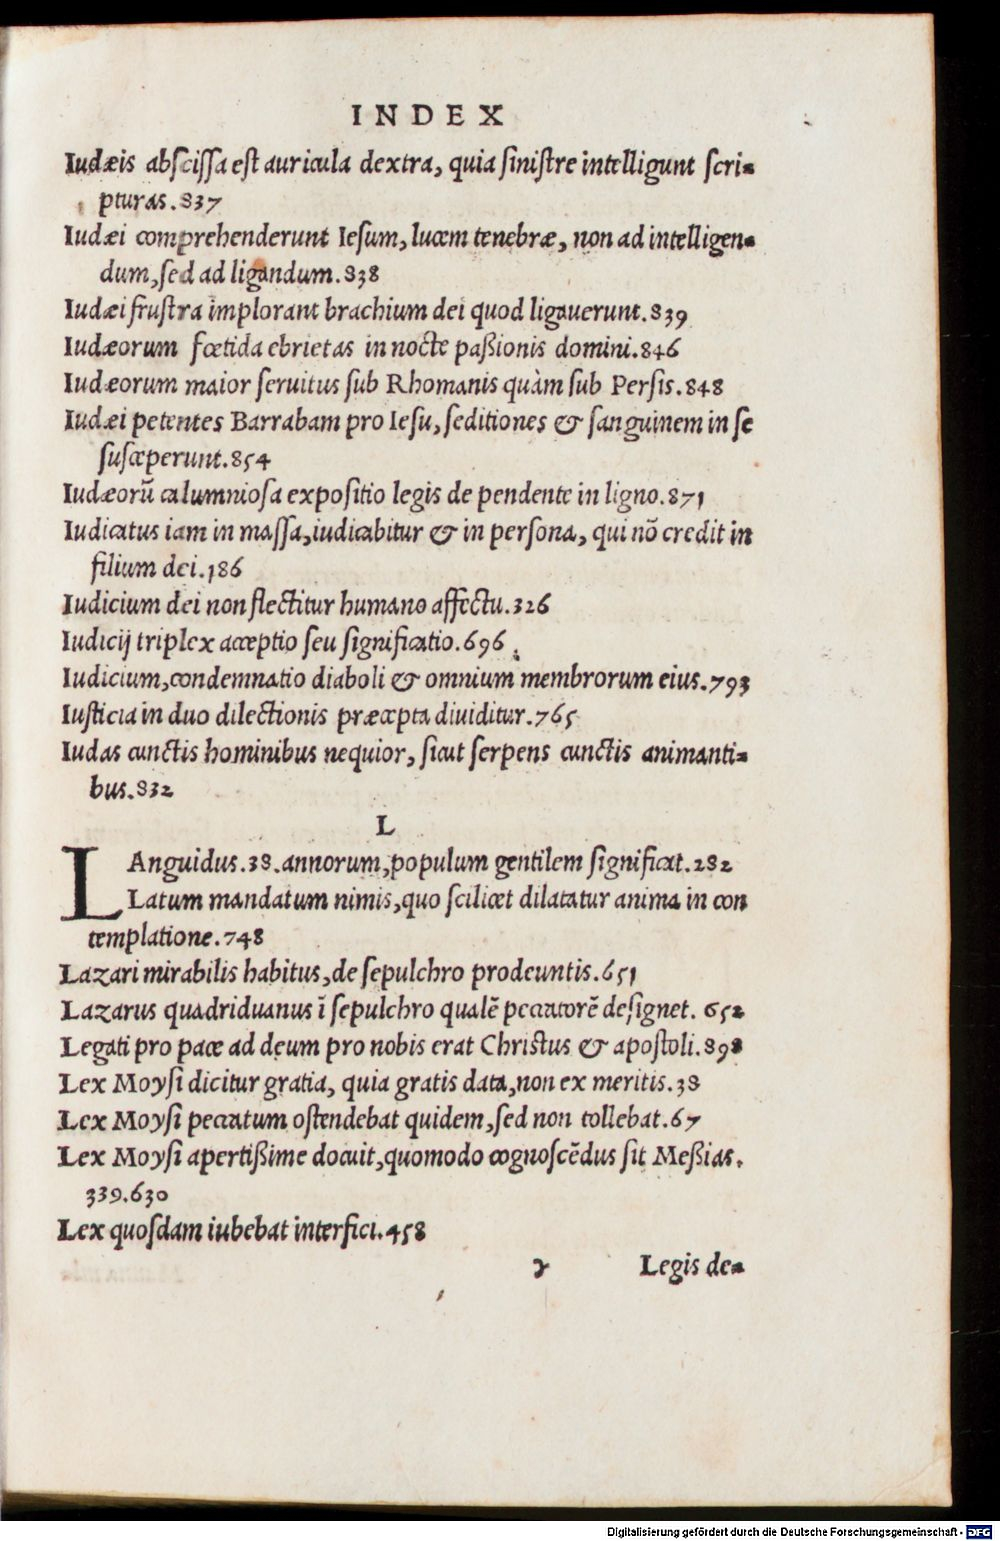 INDEX
Iudæis abscissa est auricula dextra, quia sinistre intelligunt scri-
pturas. 837
Iudæi comprehenderunt Iesum, lucem tenebræ, non ad intelligen-
dum, sed ad ligandum. 838
Iudæi frustra implorant brachium dei quod ligauerunt. 839
Iudæorum fœtida ebrietas in nocte paßionis domini. 846
Iudæorum maior seruitus sub Rhomanis quàm sub Persis. 848
Iudæi petentes Barrabam pro Iesu, seditiones & sanguinem in se
susceperunt. 854
Iudæorũ calumniosa expositio legis de pendente in ligno. 871
Iudicatus iam in massa, iudicabitur & in persona, qui nõ credit in
filium dei. 186
Iudicium dei non flectitur humano affectu. 326
Iudicij triplex acceptio seu significatio. 696
Iudicium, condemnatio diaboli & omnium membrorum eius. 793
Iusticia in duo dilectionis præcepta diuiditur. 765
Iudas cunctis hominibus nequior, sicut serpens cunctis animanti-
bus. 832
L
LAnguidus. 38. annorum, populum gentilem significat. 282
Latum mandatum nimis, quo scilicet dilatatur anima in con
templatione. 748
Lazari mirabilis habitus, de sepulchro prodeuntis. 651
Lazarus quadriduanus ĩ sepulchro qualẽ peccatorẽ designet. 652
Legati pro pace ad deum pro nobis erat Christus & apostoli. 898
Lex Moysi dicitur gratia, quia gratis data, non ex meritis. 38
Lex Moysi peccatum ostendebat quidem, sed non tollebat. 67
Lex Moysi apertißime docuit, quomodo cognoscẽdus sit Meßias.
339. 630
Lex quosdam iubebat interfici. 458
γ Legis de-
Digitalisierung gefördert durch die Deutsche Forschungsgemeinschaft - DFG